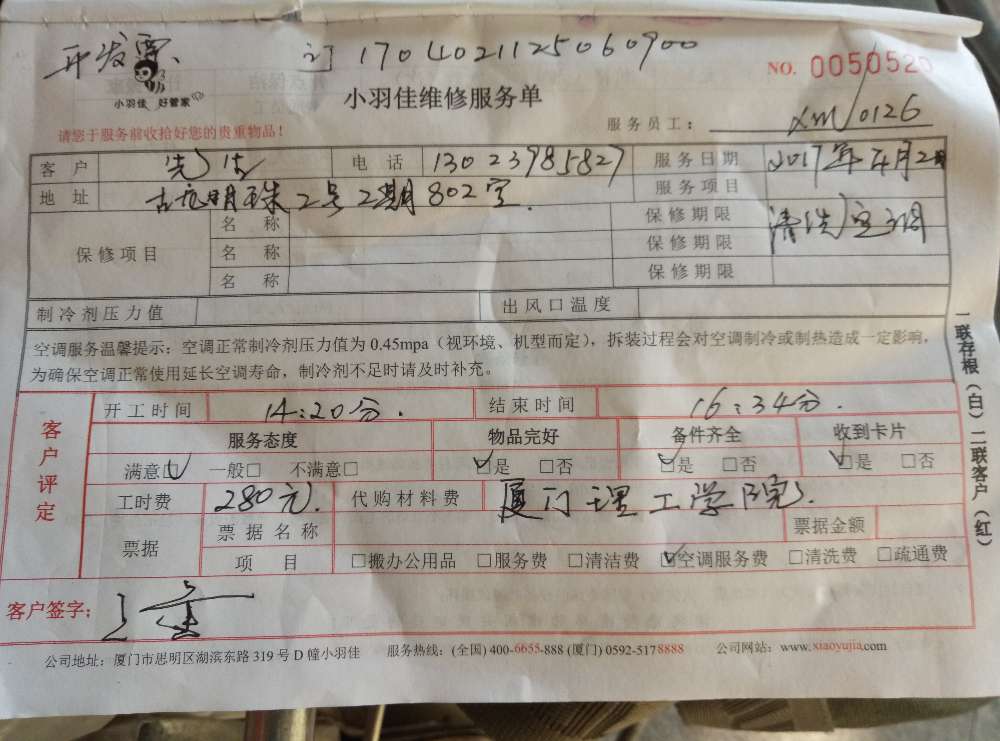 开发票、 订 1704021125060900
小羽佳 好管家
小羽佳维修服务单
NO. 0050520
请您于服务前收拾好您的贵重物品！
服务员工： xm0126
客户 电话 13023985827 服务日期 2017年4月2日
地址 古龙明珠2号2期802室. 服务项目 清洗空调
保修项目 名称 保修期限
名称 保修期限
名称 保修期限
制冷剂压力值 出风口温度
空调服务温馨提示：空调正常制冷剂压力值为 0.45mpa（视环境、机型而定），拆装过程会对空调制冷或制热造成一定影响，
为确保空调正常使用延长空调寿命，制冷剂不足时请及时补充。
客户评定
开工时间 14:20分. 结束时间 16:34分.
服务态度 物品完好 备件齐全 收到卡片
满意☑ 一般□ 不满意□ ☑是 □否 ☑是 □否 ☑是 □否
工时费 280元. 代购材料费 厦门理工学院.
票据 票据名称 票据金额
项目 □搬办公用品 □服务费 □清洁费 ☑空调服务费 □清洗费 □疏通费
客户签字：
公司地址：厦门市思明区湖滨东路 319 号 D 幢小羽佳 服务热线：(全国) 400-6655-888 (厦门) 0592-5178888 公司网站：www.xiaoyujia.com
一联存根（白）二联客户（红）